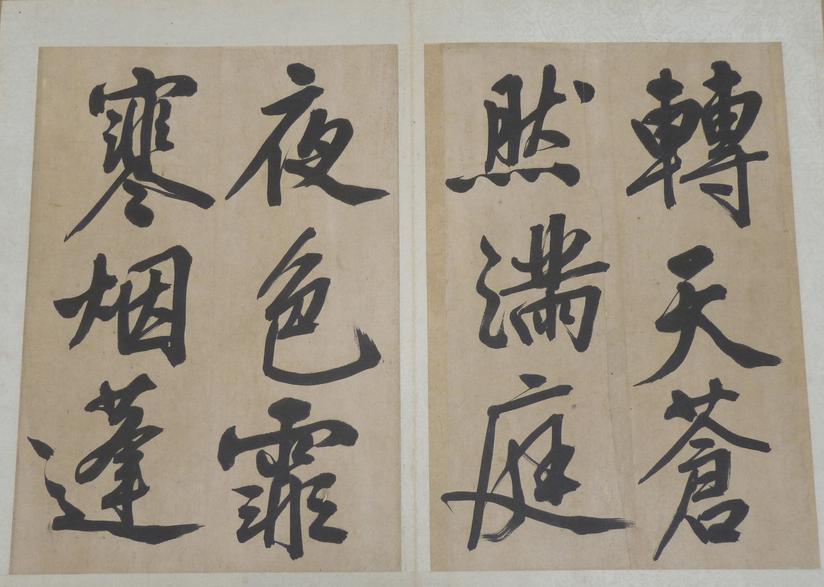 轉天蒼
然滿庭
夜色霏
寒烟蓬